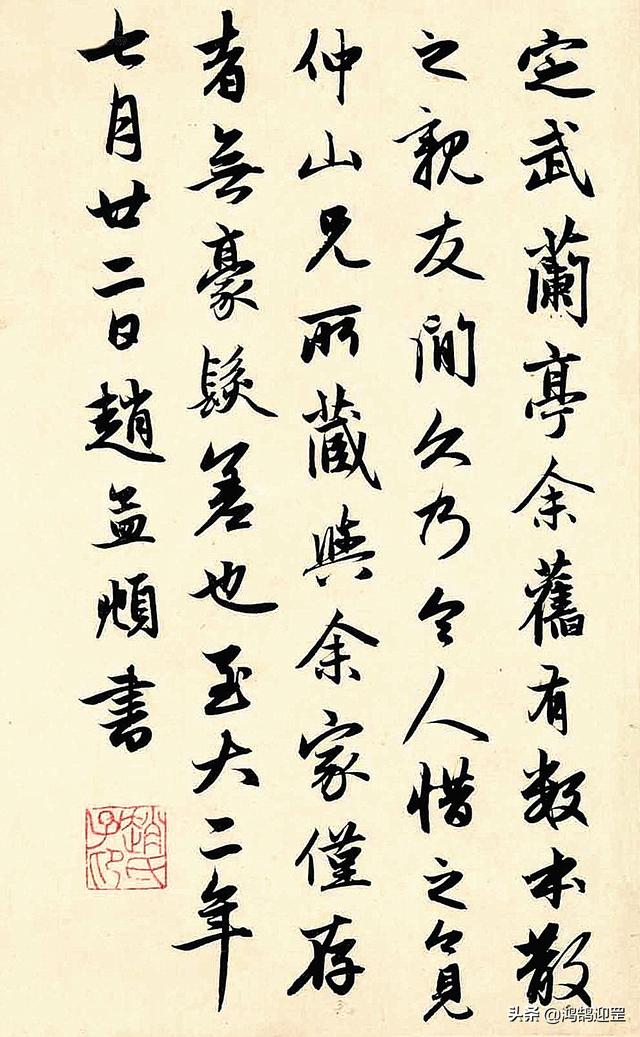 定武蘭亭余舊有數本散
之親友間久乃令人惜之今見
仲山兄所藏與余家僅存
者無豪髮差也至大二年
七月廿二日趙孟頫書
趙氏子昂
头条 @鸿鹄迎罡